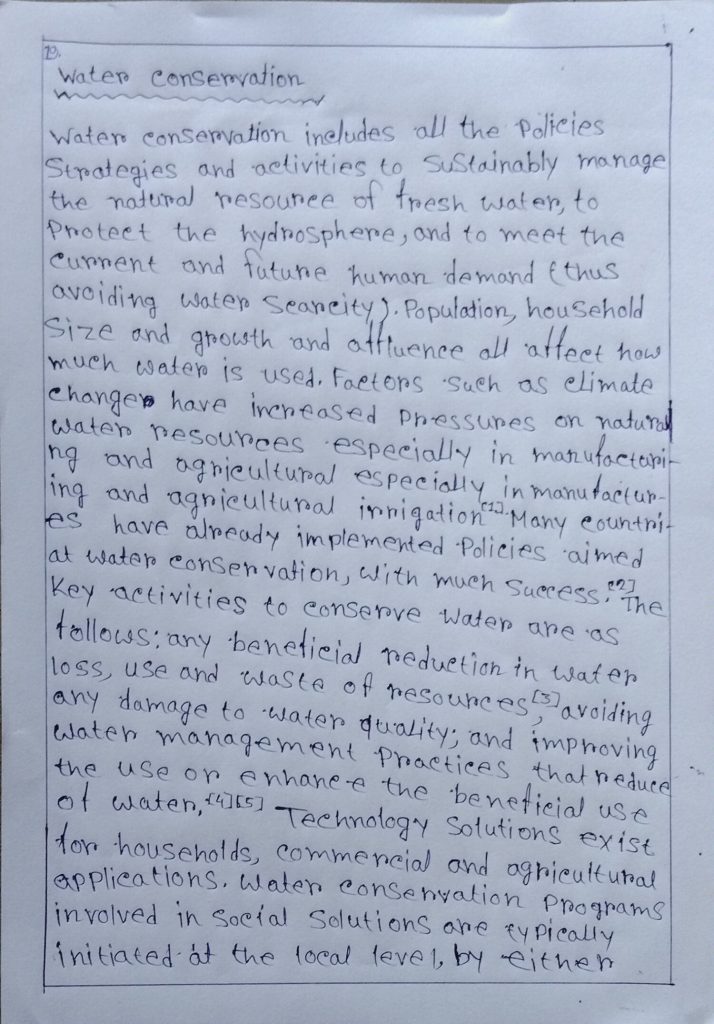 19.
Water conservation
Water conservation includes all the Policies
Strategies and activities to Sustainably manage
the natural resource of fresh water, to
Protect the hydrosphere, and to meet the
current and future human demand (thus
avoiding water Scarcity). Population, household
Size and growth and affluence all affect how
much water is used. Factors such as climate
change have increased Pressures on natural
water resources especially in manufacturi-
ng and agricultural especially in manufactur-
ing and agricultural irrigation[1]. Many countri-
es have already implemented Policies aimed
at water conservation, with much Success.[2] The
Key activities to conserve water are as
follows: any beneficial reduction in water
loss, use and waste of resources[3], avoiding
any damage to water quality; and improving
water management Practices that reduce
the use or enhance the beneficial use
of water,[4][5] Technology Solutions exist
for households, commercial and agricultural
applications. Water conservation Programs
involved in Social Solutions are typically
initiated at the local level, by either